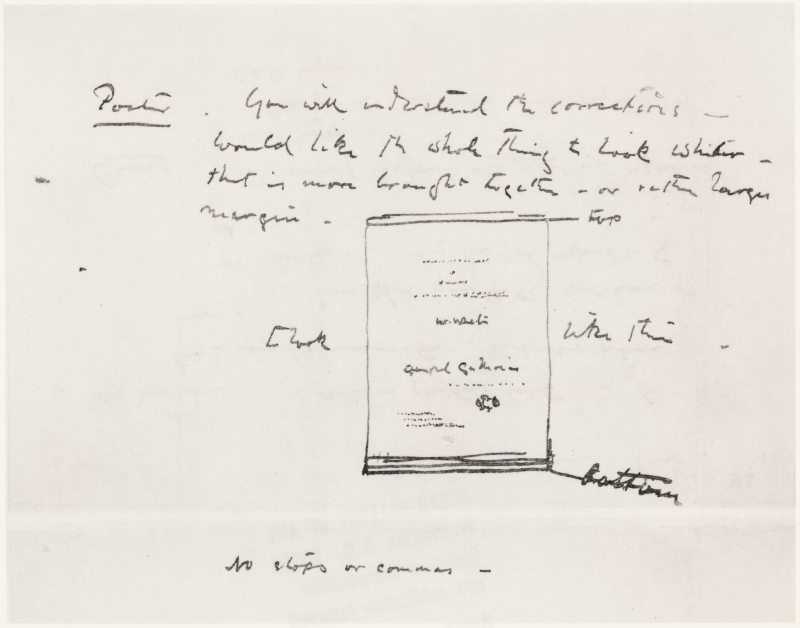 Poster. You will understand the corrections —
would like the whole thing to look whiter —
that is more brought together — or rather larger
margin —
top
Mr. Whistler
to look
like this —
Goupil Galleries
bottom
No stops or commas —